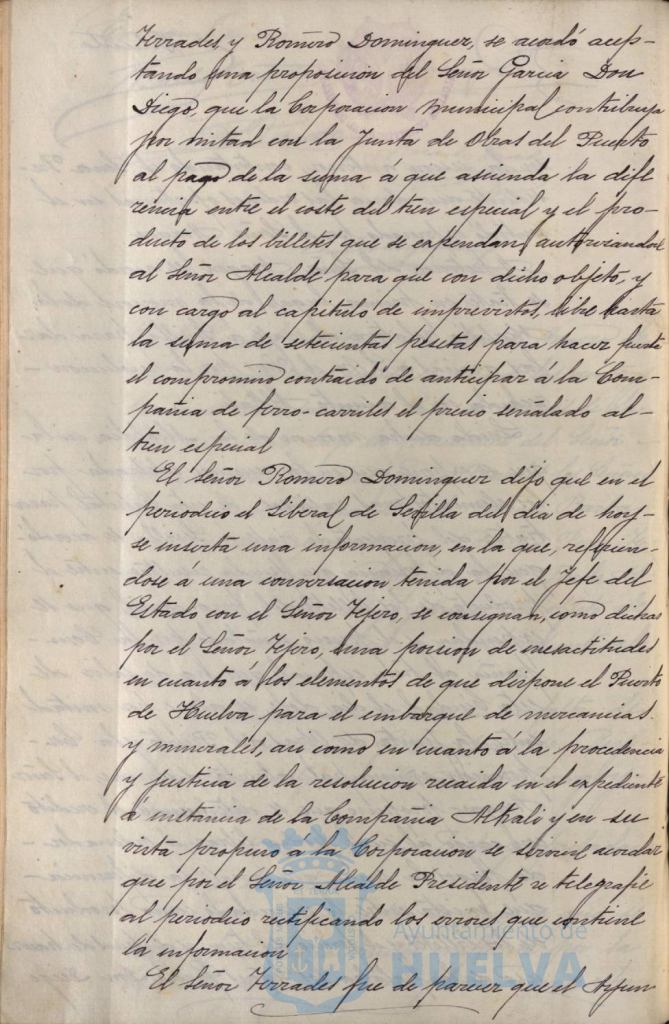 Terrades y Romero Dominguez, se acordó acep-
tando una proposicion del Señor Garcia Don
Diego, que la Corporacion Municipal contribuya
por mitad con la Junta de Obras del Puerto
al pago de la suma á que ascienda la dife
rencia entre el coste del tren especial y el pro-
ducto de los billetes que se expendan, autorizandose
al Señor Alcalde para que con dicho objeto, y
con cargo al capitulo de imprevistos, libre hasta
la suma de setecientas pesetas para hacer frente
el compromiso contraido de anticipar á la Com-
pañia de ferro-carriles el precio señalado al-
tren especial
El Señor Romero Dominguez dijo que en el
periodico el Liberal de Sevilla del dia de hoy-
se inserta una informacion, en la que, refirien-
dose á una conversacion tenida por el Jefe del
Estado con el Señor Tejero, se consignan, como dichas
por el Señor Tejero, una porsion de inexactitudes
en cuanto á los elementos de que dispone el Puerto
de Huelva para el embarque de mercancias
y minerales, asi como en cuanto á la procedencia
y justicia de la resolucion recaida en el expediente
á instancia de la Compañia Alkali y en su
vista propuso á la Corporacion se sirviese acordar
que por el Señor Alcalde Presidente se telegrafie
al periodico rectificando los errores que contiene
la informacion
El Señor Terrades fue de parecer que el Ayun
Ayuntamiento de
HUELVA